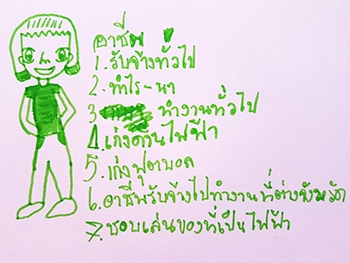 อาชีพ
1. รับจ้างทั่วไป
2. ทำไร่-นา
3 ทำงานทั่วไป
4. เก่งด้านไฟฟ้า
5. เก่งฟุตบอล
6. อาชีพรับจ้างไปทำงานที่ต่างจังหวัด
7. ชอบเล่นของที่เป็นไฟฟ้า